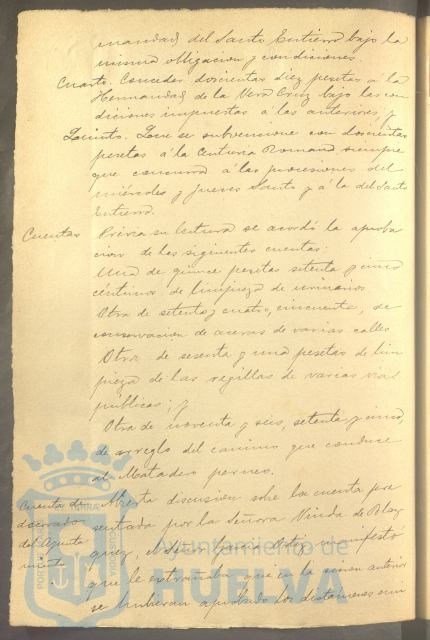 mandad del Santo Entierro bajo la
misma obligacion y condiciones.
Cuarto. Conceder doscientas diez pesetas á la
Hermandad de la Vera Cruz bajo las con
diciones impuestas á las anteriores, y
Quinto. Que se subvencione con doscientas
pesetas á la Centuria Romana siempre
que concurra á las procesiones del
miércoles y Jueves Santo y á la del Santo
Entierro.
Cuentas
Previa su lectura se acordó la aproba
cion de las siguientes cuentas:
Una de quince pesetas setenta y cinco
céntimos de limpieza de urinarios
Otra de setenta y cuatro, cincuenta, de
conservacion de aceras de varias calles
Otra de sesenta y una pesetas de lim
pieza de las regillas de varias vias
públicas; y
Otra de noventa y seis, setenta y cinco,
de arreglo del camino que conduce
al Matadero
Cuenta de
del Ayunta
miento
Abierta discusion sobre la cuenta pre
sentada por la Señora Viuda de Blaz
quez, el Señor Garcia manifestó
que le extrañaba que en la sesion anterior
se hubieran aprobado los dictamenes
Ayuntamiento de
HUELVA